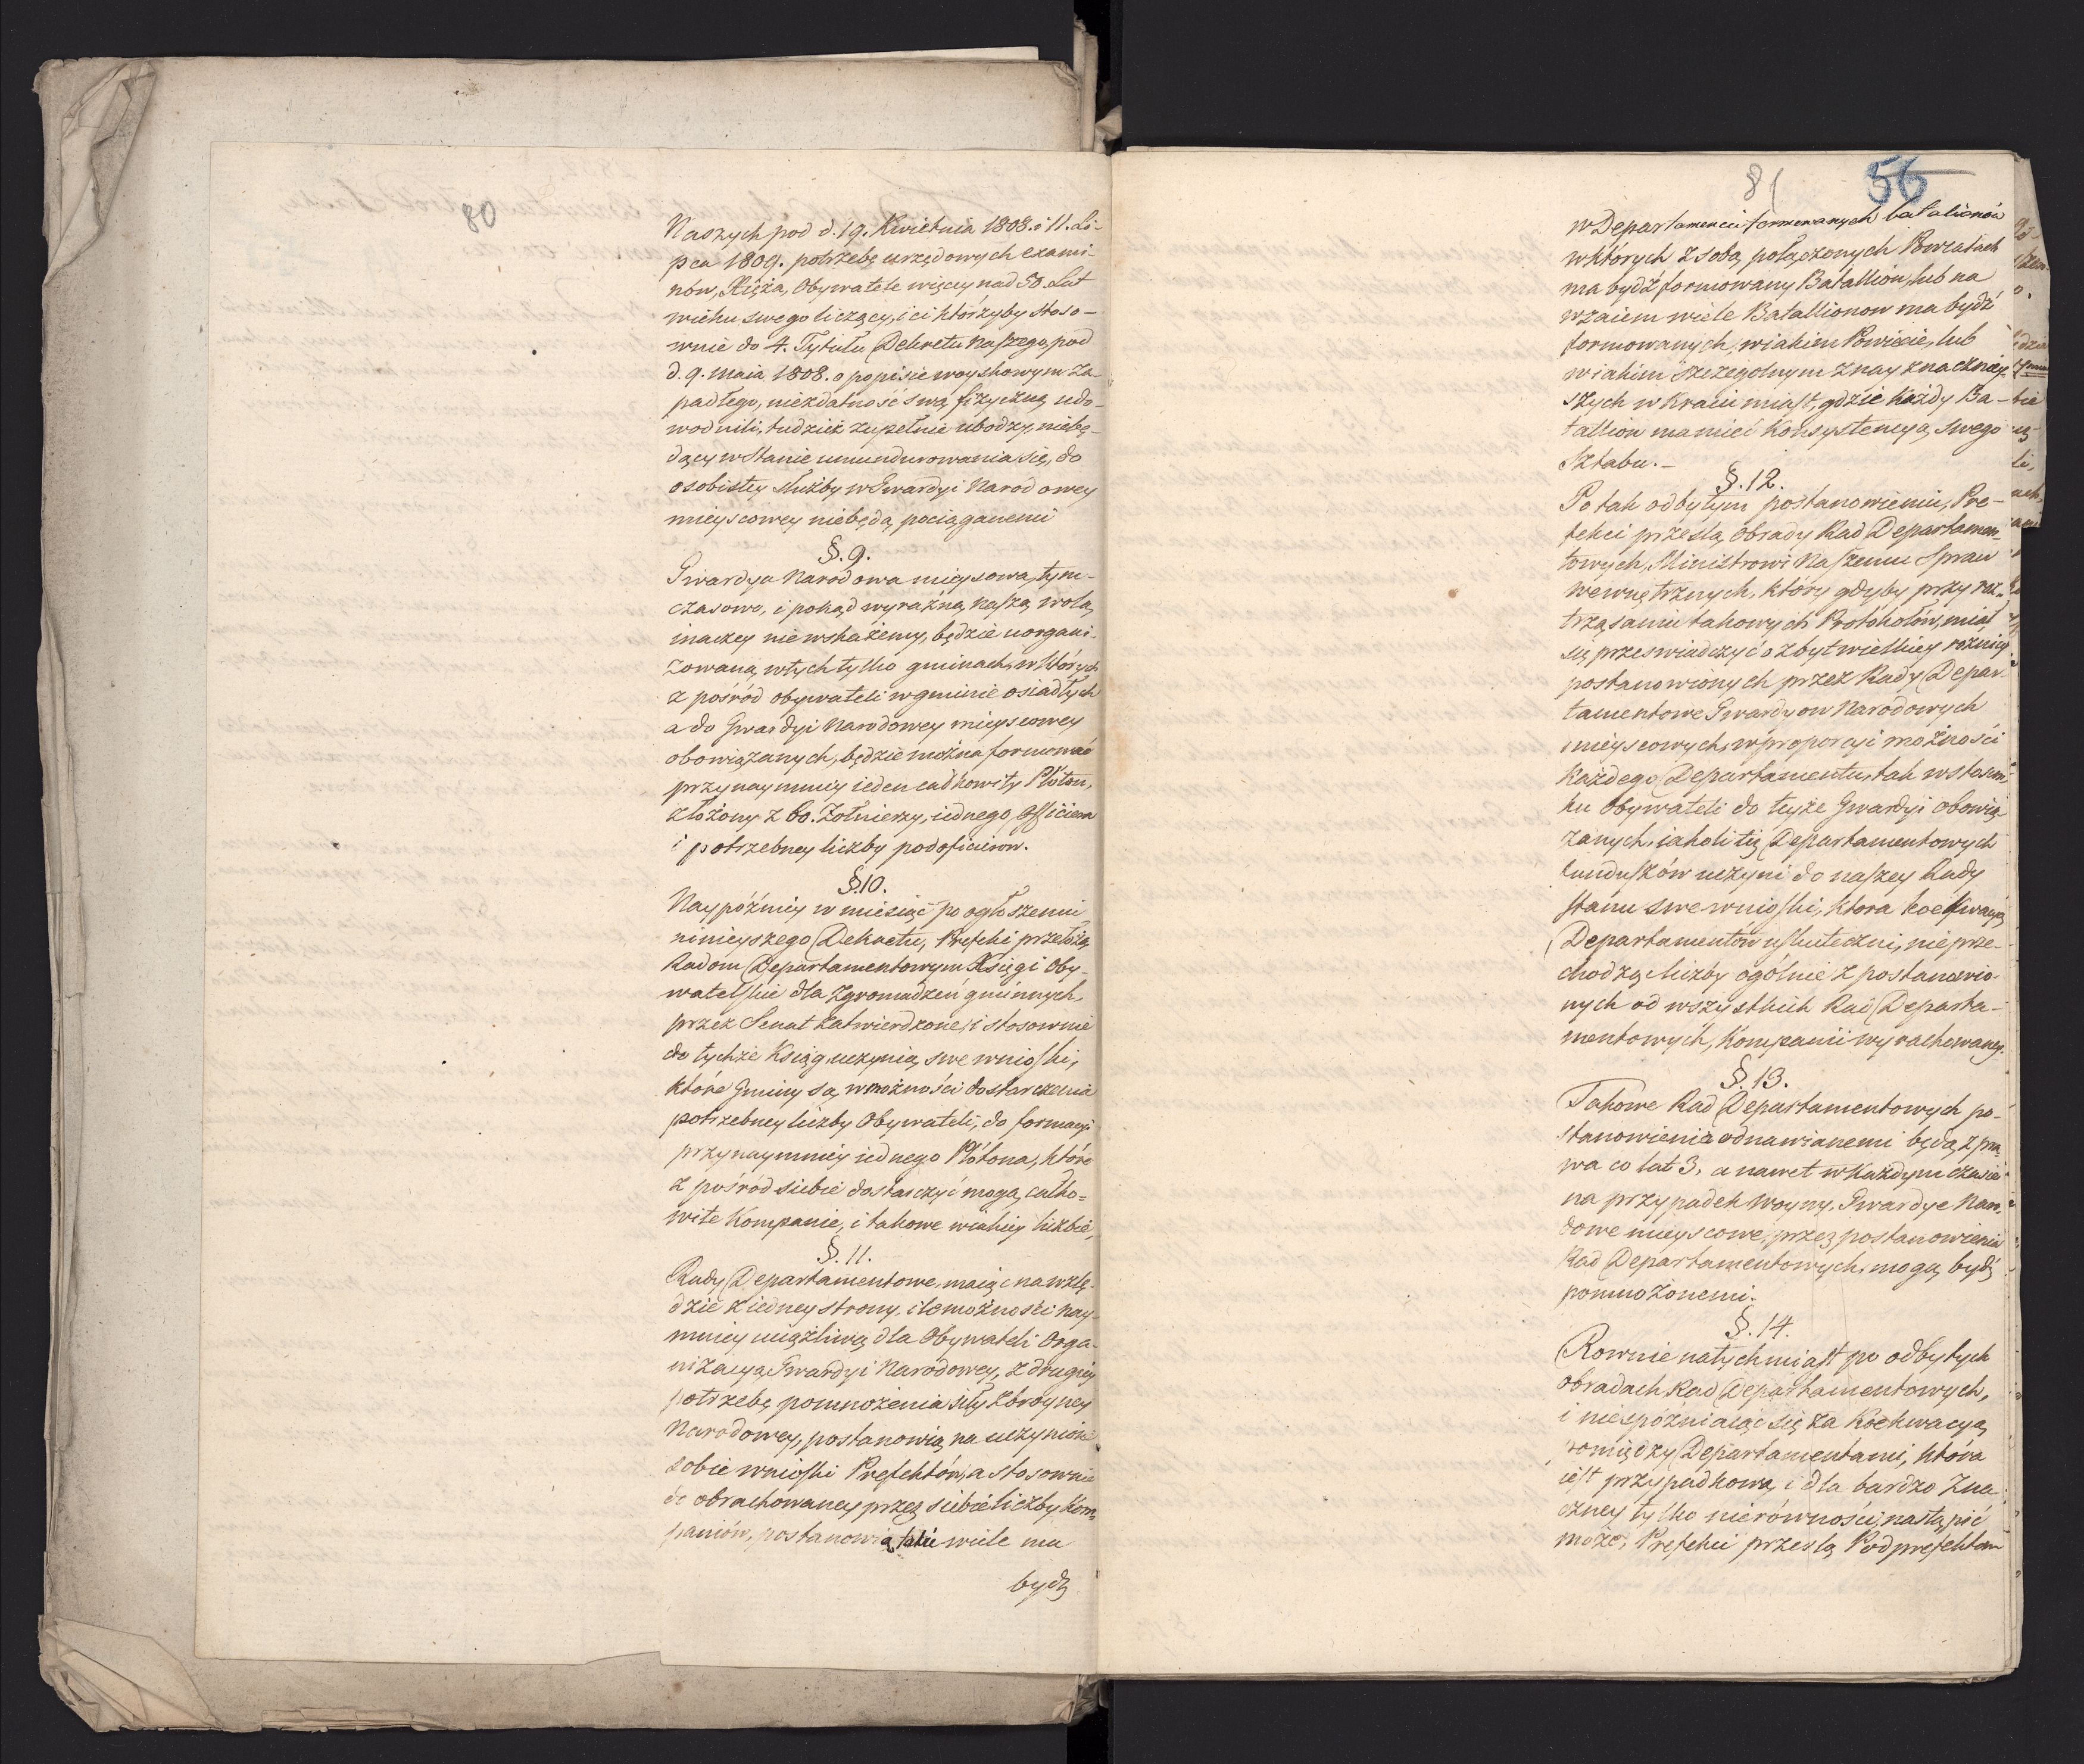 80
Naszych pod d. 19. Kwietnia 1808. i 11. Li-
pca 1809. potrzebę urzędowych exami-
nów, Xięża, Obywatele więcey nad 50. Lat
wieku swego liczący, i ci którzyby stoso-
wnie do 4. Tytułu Dekretu Naszego, pod
d. 9. Maia 1808. o popisie woyskowym za-
padłego, niezdatność swą fizyczną udo-
wodnili, tudzież zupełnie ubodzy, niebę-
dący w stanie umundurowania się, do
osobistey służby w Gwardyi Narodowey
mieyscowey niebędą pociąganemi
§. 9.
Gwardya Narodowa mieysowa, tym-
czasowo, i pokąd wyraźną naszą wolą,
inaczey niewskażemy, będzie uorgani-
zowaną w tych tylko gminach, w których
z pośród obywateli w gminie osiadłych
a do Gwardyi Narodowey mieyscowey
obowiązanych, będzie można formować
przynaymniey ieden całkowity Ploton,
złożony z 60. Żołnierzy, iednego Officiera
i potrzebney liczby podoficierow.
§. 10.
Naypóźniey w miesiąc po ogłoszeniu
ninieyszego Dekretu, Prefekci przełożą
Radom Departamentowym Xsięgi Oby-
watelskie dla Zgromadzeń gminnych,
przez Senat zatwierdzone, i stosownie
do tychże Xsiąg, uczynią swe wnioski,
które Gminy są, w możności dostarczenia
potrzebney liczby Obywateli, do formacyi
przynaymniey iednego Plotona, które
z pośród siebie dostarczyć mogą, całko-
wite Kompanie, i takowe w iakiey liczbie,
§. 11.
Rady Departamentowe, maiąc na wzlę-
dzie z iedney strony, ile możności nay-
mniey uciążliwą dla Obywateli Orga-
nizacyą Gwardyi Narodowey, z drugiey
potrzebę pomnożenia siły zbroyney
Narodowey, postanowią na uczynione
sobie wnioski Prefektów, a stosownie
do obrachowaney przez siebie liczby Kom-
paniów, postanowią takie wiele ma
bydź
81 56
w Departamencie formowanych batalionów
w których z sobą połączonych Powiatach
ma bydź formowany Batallion, lub na
wzaiem wiele Batallionow ma bydź
formowanych, w iakim Powiecie, lub
w iakim szczegolnym z nayznacznie-
szych w Kraiu miast, gdzie każdy Ba-
tallion ma mieć Konsystencyą swego
Sztabu. –
§. 12.
Po tak odbytym postanowieniu, Pre-
fekci prześlą, obrady Rad Departamen-
towych, Ministrowi Naszemu Spraw
wewnętrznych, który gdyby przy roz-
trząsaniu takowych Protokołów, miał
się przeswiadczyć o zbyt wielkiey rożnicy
postanowionych przez Rady Depar-
tamentowe Gwardyow Narodowych
mieyscowych, w proporcyi możności
każdego Departamentu, tak w stosun-
ku Obywateli do teyże Gwardyi obowią-
zanych, iako li też Departamentowych
funduszów uczyni do naszey Rady
stanu swe wnioski, ktora koekwacyą
Departamentow uskuteczni, nieprze-
chodząc liczby ogólnie z postanowio-
nych od wszystkich Rad Departa-
mentowych, Kompanii wyrachowaney.
§. 13.
Takowe Rad Departamentowych po-
stanowienia odnawianemi będą z pra-
wa co lat 3. a nawet w każdym czasie
na przypadek woyny. Gwardye Naro-
dowe mieyscowe, przez postanowienia
Rad Departamentowych, mogą bydź
pomnożonemi.
§. 14.
Rownie natychmiast po odbytych
obradach Rad Departamentowych,
i nieopóźniaiąc się za Koekwacyą
pomiędzy Departamentami, która
iest przypadkową, i dla bardzo zna-
czney tylko nierówności, nastąpić
może; Prefekci prześlą Podprefektom